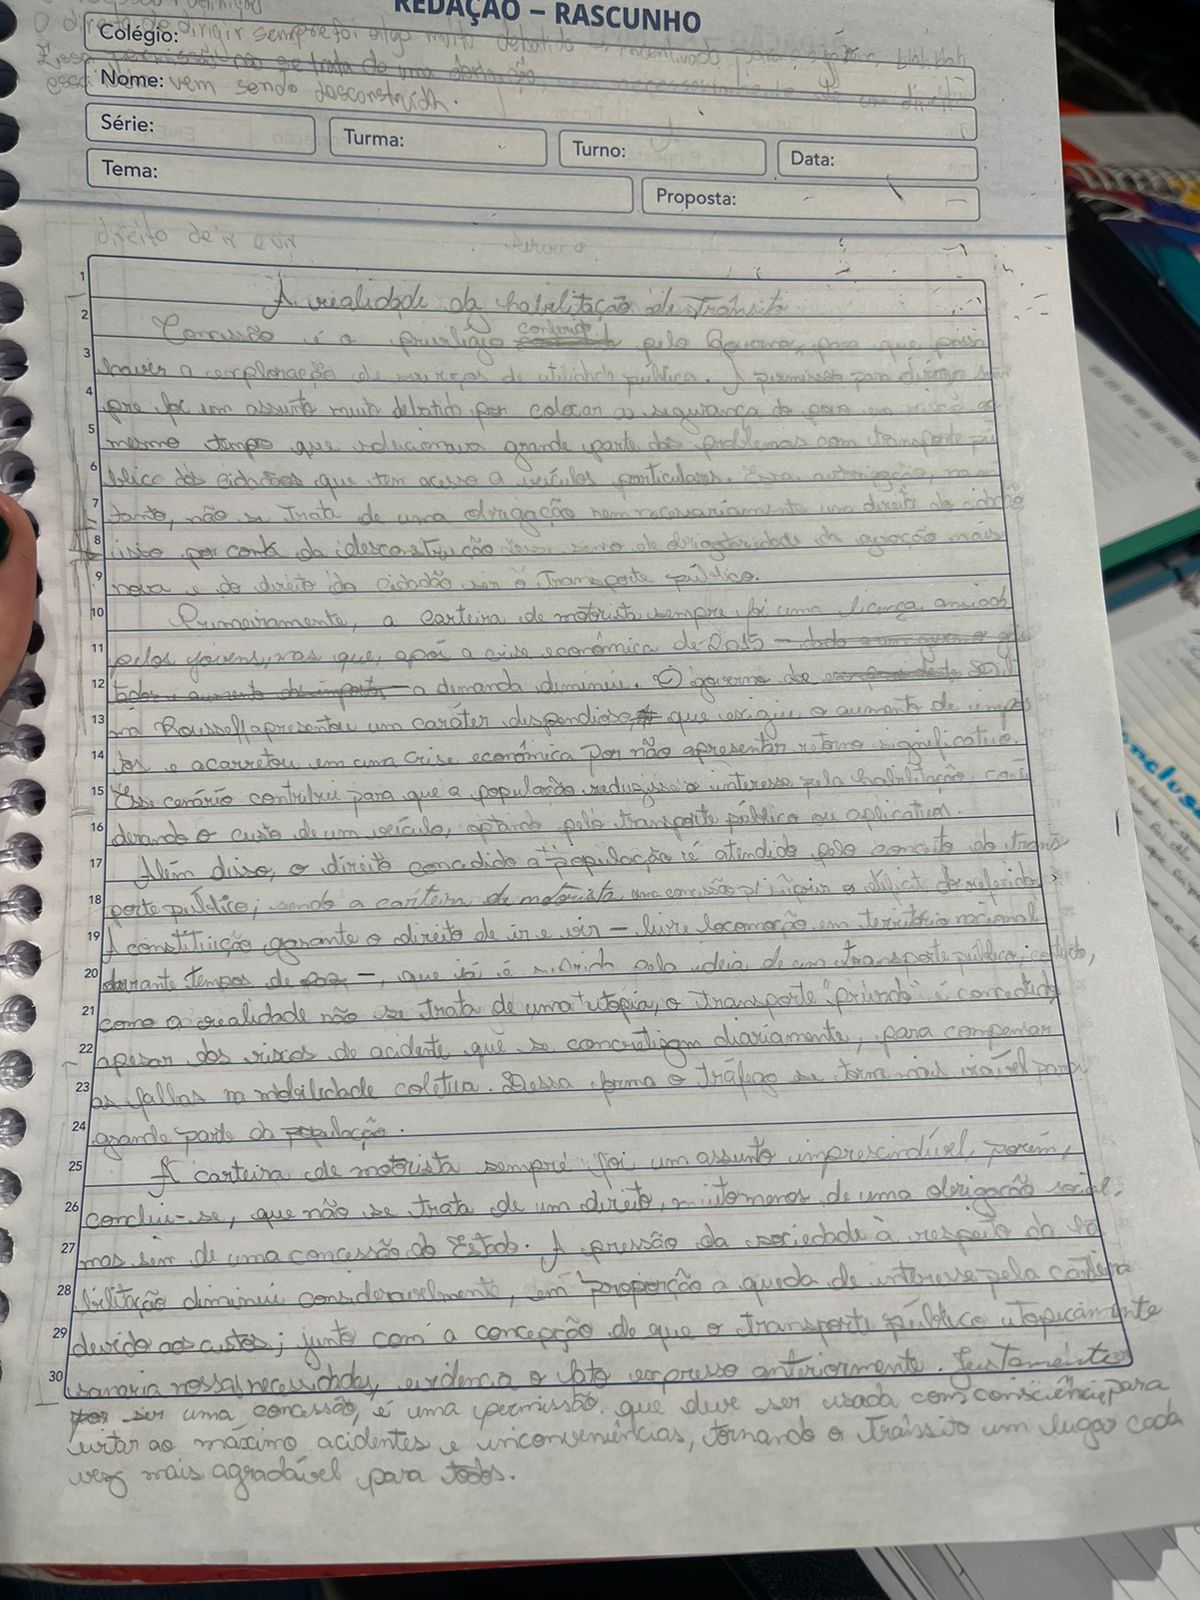 REDAÇÃO – RASCUNHO
O direito de dirigir sempre foi algo muito debatido
Colégio:
Nome: vem sendo desconstruída.
Série:
Turma:
Turno:
Data:
Tema:
Proposta:
direito de ir e vir
1 A realidade da habilitação de Trânsito
2 Concessão é o privilégio conferido pelo Governo, para que possa
3 haver a exploração de serviços de utilidade pública. A permissão para dirigir sem
4 pre foi um assunto muito debatido por colocar a segurança do país em ao
5 mesmo tempo que soluciona grande parte dos problemas com transporte pú
6 blico dos cidadões que tem acesso a veículos particulares. Essa autorização, no en
7 tanto, não se trata de uma obrigação nem necessariamente um direito do cidadão
8 isso por conta da desconstrução desse senso de obrigatoriedade da geração mais
9 nova e do direito do cidadão ser o transporte público.
10 Primeiramente, a carteira de motorista sempre foi uma licença ansiada
11 pelos jovens, mas que, após a crise econômica de 2015
12 a demanda diminuiu. O governo de Dil
13 ma Rousseff apresentou um caráter dispendioso que exigiu o aumento de impos
14 tos e acarretou em uma crise econômica por não apresentar retorno significativo.
15 Esse cenário contribui para que a população reduzisse o interesse pela habilitação, consi
16 derando o custo de um veículo, optando pelo transporte público ou aplicativos.
17 Além disso, o direito concedido a população é atendido pelo conceito do trans
18 porte público; sendo a carteira de motorista uma concessão p/ suprir o déficit do referido.
19 A constituição garante o direito de ir e vir – livre locomoção em território nacional
20 durante tempos de paz –, que já é suprido pela ideia de um transporte público; contudo,
21 como a realidade não se trata de uma utopia, o transporte "privado" é concedido
22 apesar dos riscos de acidente que se concretizam diariamente, para compensar
23 as falhas na mobilidade coletiva. Dessa forma o tráfego se torna mais viável para
24 grande parte da população.
25 A carteira de motorista sempre foi um assunto imprescindível, porém,
26 conclui-se, que não se trata de um direito, muito menos de uma obrigação social,
27 mas sim de uma concessão do Estado. A pressão da sociedade à respeito da ha
28 bilitação diminui consideravelmente, em proporção a queda de interesse pela carteira
29 devido aos custos; junto com a concepção de que o transporte público utopicamente
30 sanaria nossas necessidades, evidencia o fato expresso anteriormente. Justamente
por ser uma concessão, é uma permissão que deve ser usada com consciência, para
evitar ao máximo acidentes e inconveniências, tornando o trânsito um lugar cada
vez mais agradável para todos.